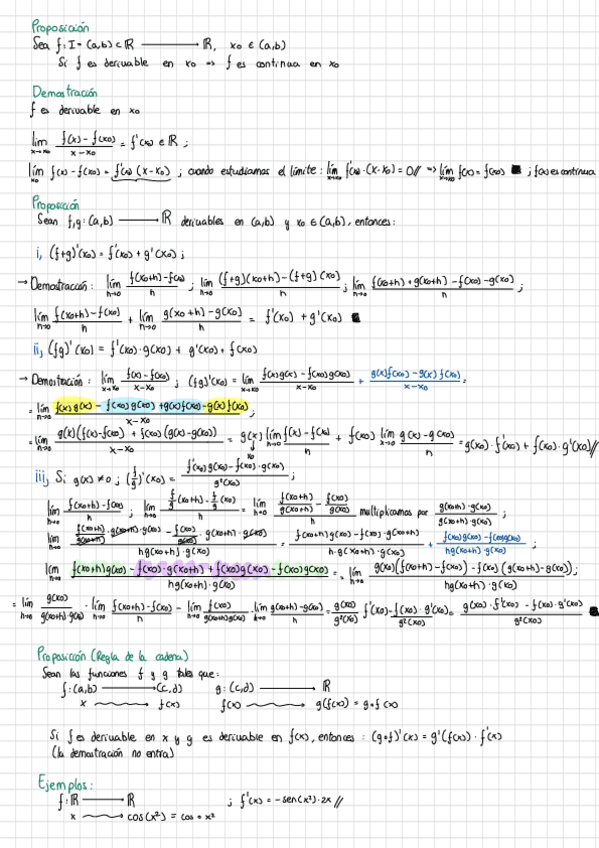 Proposición
Sea f: I = (a,b) ⊂ ℝ ⟶ ℝ, x₀ ∈ (a,b)
Si f es derivable en x₀ ⇒ f es continua en x₀
Demostración
f es derivable en x₀
lím x→x₀ (f(x) − f(x₀))/(x − x₀) = f'(x₀) ∈ ℝ ;
lím x₀ f(x) − f(x₀) = f'(x₀) (x − x₀) ; cuando estudiamos el límite : lím x→x₀ f'(x₀)·(x − x₀) = 0 // ⇒ lím x→x₀ f(x) = f(x₀) ■ ; f(x) es continua
Proposición
Sean f,g: (a,b) ⟶ ℝ derivables en (a,b) y x₀ ∈ (a,b), entonces:
i, (f+g)'(x₀) = f'(x₀) + g'(x₀) ;
→ Demostración: lím h→0 (f(x₀+h) − f(x₀))/h ; lím h→0 ((f+g)(x₀+h) − (f+g)(x₀))/h ; lím h→0 (f(x₀+h) + g(x₀+h) − f(x₀) − g(x₀))/h ;
lím h→0 (f(x₀+h) − f(x₀))/h + lím h→0 (g(x₀+h) − g(x₀))/h = f'(x₀) + g'(x₀) ■
ii, (fg)'(x₀) = f'(x₀)·g(x₀) + g'(x₀)·f(x₀)
→ Demostración : lím x→x₀ (f(x) − f(x₀))/(x − x₀) ; (fg)'(x₀) = lím x→x₀ (f(x)g(x) − f(x₀)g(x₀))/(x − x₀) + (g(x)f(x₀) − g(x)f(x₀))/(x − x₀) =
= lím x→x₀ (f(x)g(x) − f(x₀)g(x₀) + g(x)f(x₀) − g(x)f(x₀))/(x − x₀) ;
= lím h→0 (g(x)(f(x) − f(x₀)) + f(x₀)(g(x) − g(x₀)))/(x − x₀) = g(x) lím h→0 (f(x) − f(x₀))/h + f(x₀) lím h→0 (g(x) − g(x₀))/h = g(x₀)·f'(x₀) + f(x₀)·g'(x₀) //
x₀
iii, Si g(x) ≠ 0 ; (f/g)'(x₀) = (f'(x₀)g(x₀) − f(x₀)·g'(x₀))/ ;
lím h→0 (f(x₀+h) − f(x₀))/h ; lím h→0 (f/g (x₀+h) − f/g (x₀))/h = lím h→0 (f(x₀+h)/g(x₀+h) − f(x₀)/g(x₀))/h multiplicamos por (g(x₀+h)·g(x₀))/(g(x₀+h)·g(x₀)) ;
lím h→0 (f(x₀+h)/g(x₀+h) · g(x₀+h)·g(x₀) − f(x₀)/g(x₀) · g(x₀+h)·g(x₀))/(hg(x₀+h)·g(x₀)) = (f(x₀+h)g(x₀) − f(x₀)·g(x₀+h))/(h·g(x₀+h)·g(x₀)) + (f(x₀)g(x₀) − f(x₀)g(x₀))/(hg(x₀+h)·g(x₀)) ;
lím h→0 (f(x₀+h)g(x₀) − f(x₀)·g(x₀+h) + f(x₀)g(x₀) − f(x₀)g(x₀))/(hg(x₀+h)·g(x₀)) = lím h→0 (g(x₀)(f(x₀+h) − f(x₀)) − f(x₀)(g(x₀+h) − g(x₀)))/(hg(x₀+h)·g(x₀)) ;
= lím h→0 g(x₀)/(g(x₀+h)·g(x₀)) · lím h→0 (f(x₀+h) − f(x₀))/h − lím h→0 f(x₀)/(g(x₀+h)g(x₀)) · lím h→0 (g(x₀+h) − g(x₀))/h = g(x₀)/g²(x₀) f'(x₀) − f(x₀)·g'(x₀)/g²(x₀) = (g(x₀)·f'(x₀) − f(x₀)·g'(x₀))/g²(x₀) ■
Proposición (Regla de la cadena)
Sean las funciones f y g tales que:
f: (a,b) ⟶ (c,d) g: (c,d) ⟶ ℝ
x ⇝ f(x) f(x) ⇝ g(f(x)) = g∘f (x)
Si f es derivable en x y g es derivable en f(x), entonces : (g∘f)'(x) = g'(f(x))·f'(x)
(la demostración no entra)
Ejemplos:
f: ℝ ⟶ ℝ ; f'(x) = −sen(x²)·2x //
x ⇝ cos(x²) = cos ∘ x²